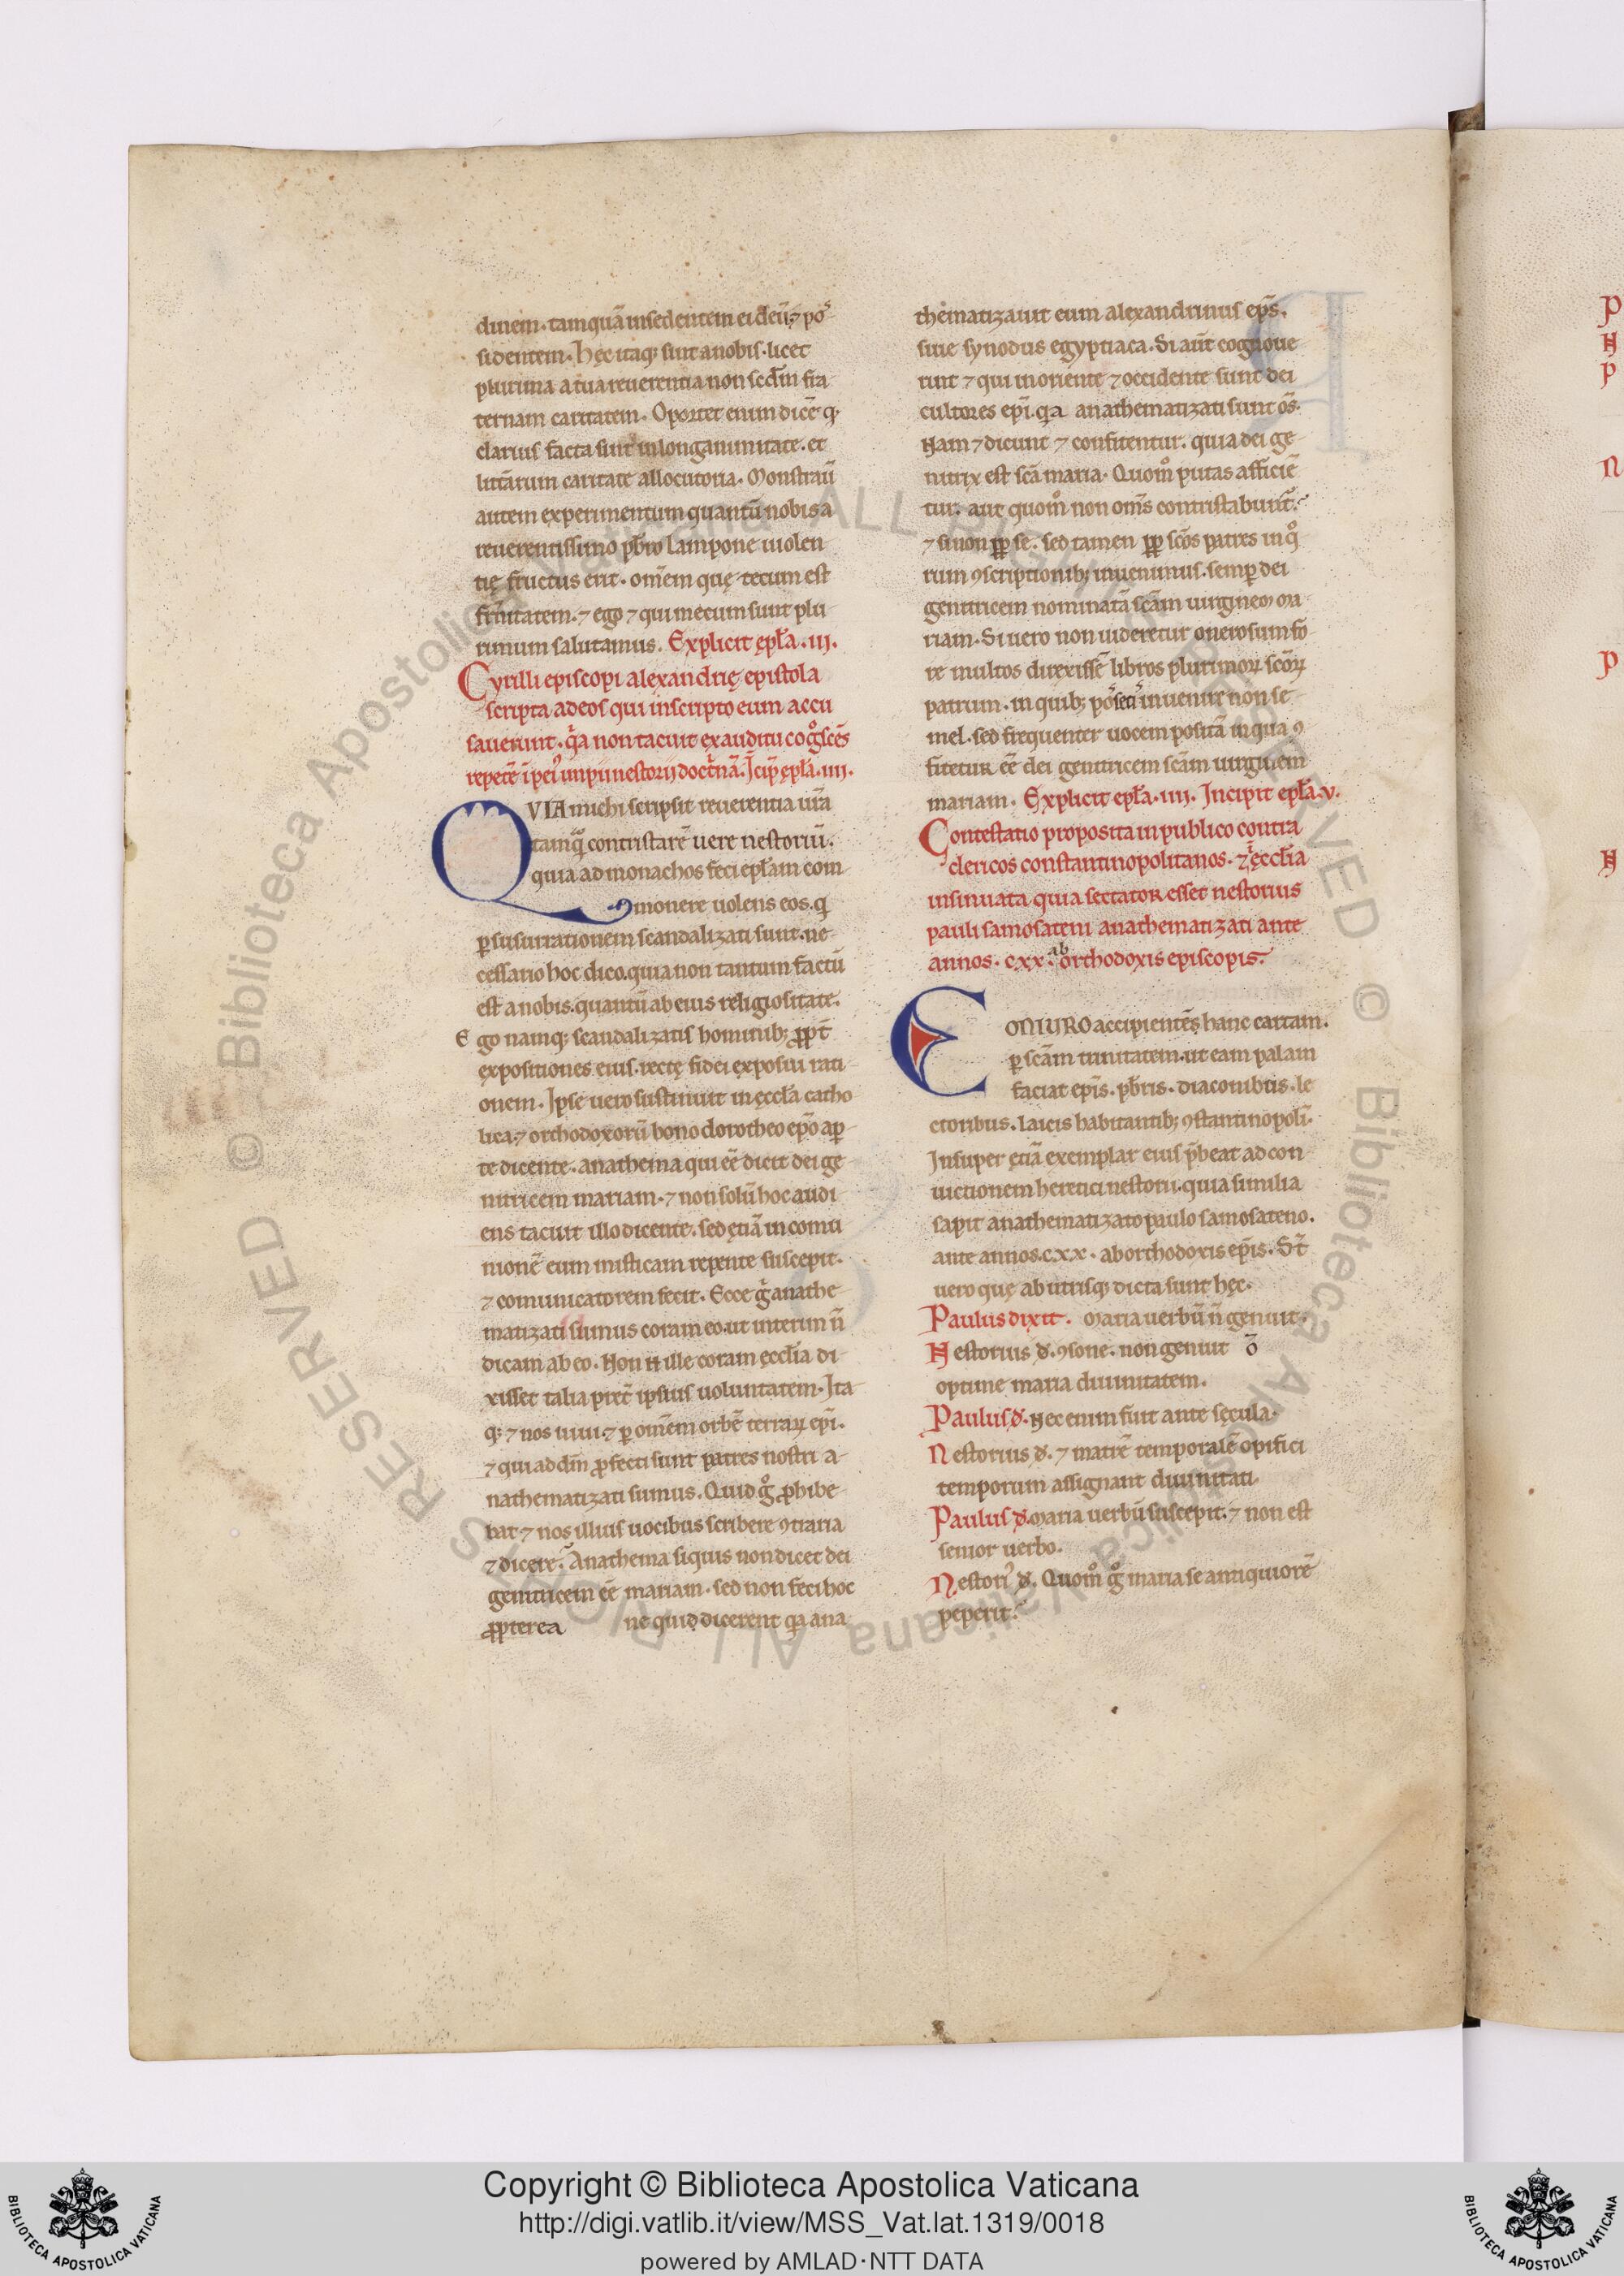 dinem. tamquã insedentem ei deũ. ⁊ pos
sidentem. Hęc itaq; sint a nobis. licet
plurima a tua reuerentia non scdm̃ fra
ternam caritatem. Oportet enim dicẽ q;
clarius facta sint in longanimitate. et
litt̃arum caritate allocutoria. Monstrau̅
autem experimentum quantũ nobis a
reuerentissimo pb̃ro lampone uiolen
tię fructus erit. om̃em quę tecum est
fr̃nitatem. ⁊ ego ⁊ qui mecum sunt plu
rimum salutamus. Explicit ep̃la .iii.
Cyrilli episcopi alexandrię epistola
scripta ad eos qui in scripto eum accu
sauerunt. q̃a non tacuit ex auditu cogͦscẽs
repetẽ impii nestorij doctͥnã. Icip̃ ep̃la .iiii.
QVIA michi scripsit reuerentia ur̃a
tamqͫ contristarẽ uere nestoriũ.
quia ad monachos feci ep̃lam com
monere uolens eos. q
ꝑ susurrationem scandalizati sunt. ne
cessario hoc dico. quia non tantum factũ
est a nobis. quantũ ab eius religiositate.
Ego namq; scandalizatis hominib; ꝓpt̃
expositiones eius. rectę fidei exposui rati
onem. Ipse uero sustinuit in ęccl̃a catho
lica. ⁊ orthodoxorũ bono dorotheo ep̃o aꝑ
te dicente. anathema qui eẽ dicit dei ge
nitricem mariam. ⁊ non solũ hoc audi
ens tacuit illo dicente. sed ętiã in comu
nionẽ eum misticam repente suscepit.
⁊ comunicatorem fecit. Ecce gͥ anathe
matizati sumus coram eo. ut interim ñ
dicam ab eo. Non ñ ille coram ęccl̃ia di
xisset talia pret̃ ipsius uoluntatem. Ita
q; ⁊ nos uiui. ⁊ ꝑ om̃em orbẽ terraꝝ ep̃i.
⁊ qui ad dñm ꝓfecti sunt patres nostri a
nathematizati sumus. Quid gͦ ꝓhibe
bat ⁊ nos illius uocibus scribere ꝯtraria
⁊ dicere? Anathema siquis non dicet dei
genitricem eẽ mariam. sed non feci hoc
ꝓpterea ne quid dicerent qa ana
thematizauit eum alexandrinus ep̃s.
siue synodus egyptiaca. Si aũt cognoue
rint ⁊ qui in oriente ⁊ occidente sunt dei
cultores ep̃i. qa anathematizati sunt om̃s.
Nam ⁊ dicunt ⁊ confitentur. quia dei ge
nitrix est scã maria. Quomͦ putas afficiẽ
tur. aut quomͦ non om̃s contristabunt̃?
⁊ si non ꝓp̃ se. sed tamen ꝓp̃ scõs patres in qͦ
rum ꝯscriptionib; inuenimus. semꝑ dei
genitricem nominatã scãm uirginem ma
riam. Si uero non uideretur onerosum fo
re multos direxissẽ libros plurimoꝝ scõꝝ
patrum. in quib; pos̃set inuenire non se
mel. sed frequenter uocem positã in qua ꝯ
fitetur eẽ dei genitricem scãm uirginem
mariam. Explicit ep̃la .iiii. Incipit ep̃la .v.
Contestatio proposita in publico contra
clericos constantinopolitanos. ⁊ ęccl̃ia
insinuata quia sectator esset nestorius
pauli samosateni anathematizati ante
annos. cxx. ab orthodoxis episcopis.
COniuro accipientẽs hanc cartam.
ꝑ scãm trinitatem. ut eam palam
faciat ep̃is. pb̃ris. diaconibus. le
ctoribus. laicis habitantib; ꝯstantinopolĩ.
Insuper ętiã exemplar eius p̃beat ad con
uictionem heretici nestorii. quia similia
sapit anathematizato paulo samosateno.
ante annos. cxx. ab orthodoxis ep̃is. St̃
uero quę ab utrisq; dicta sunt hęc.
Paulus dixit. Maria uerbũ ñ genuit.
Nestorius d̃. ꝯsone. non genuit õ
optime maria diuinitatem.
Paulus d̃. Nec enim fuit ante sęcula.
Nestorius d̃. ⁊ matrẽ temporalẽ opifici
temporum assignant diuinitati.
Paulus d̃. Maria uerbũ suscepit. ⁊ non est
senior uerbo.
Nestoriꝰ d̃. Quomͦ gͦ maria se antiquiorẽ
peperit?
Copyright © Biblioteca Apostolica Vaticana
http://digi.vatlib.it/view/MSS_Vat.lat.1319/0018
powered by AMLAD·NTT DATA